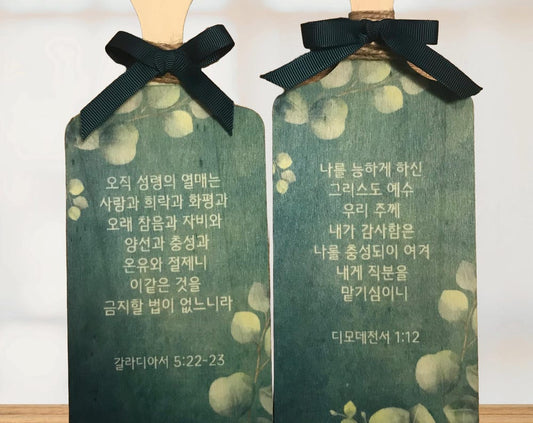 오직 성령의 열매는
사랑과 희락과 화평과
오래 참음과 자비와
양선과 충성과
온유와 절제니
이같은 것을
금지할 법이 없느니라
갈라디아서 5:22-23
나를 능하게 하신
그리스도 예수
우리 주께
내가 감사함은
나를 충성되이 여겨
내게 직분을
맡기심이니
디모데전서 1:12